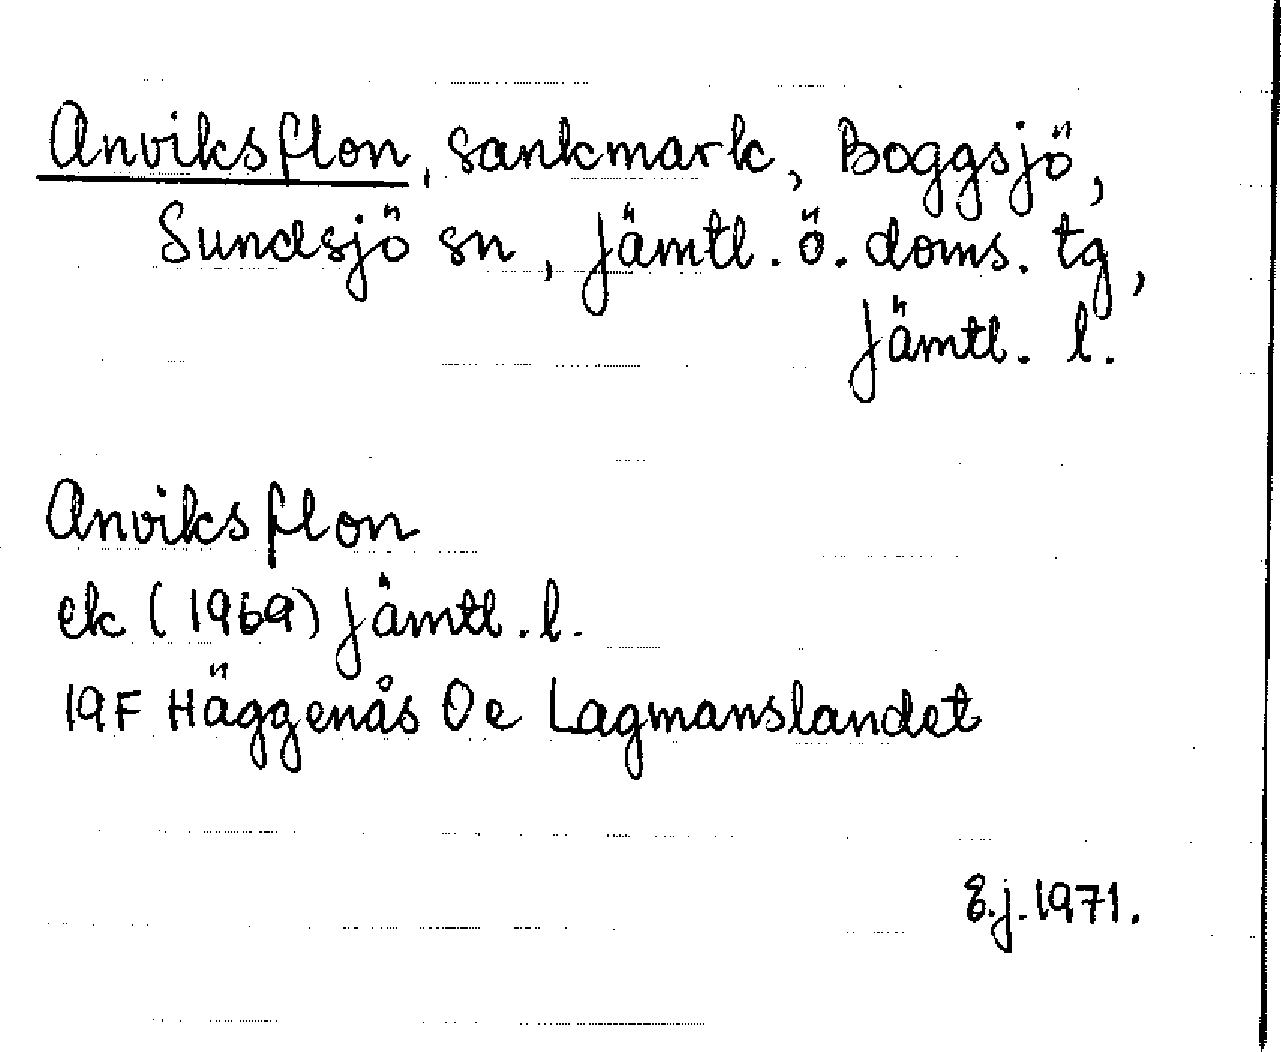 Anviksflon, sankmark, Boggsjö,
Sundsjö sn, Jämtl. ö. doms. tg,
Jämtl. l.
Anviksflon
ek (1969) Jämtl. l.
19F Häggenås Oe Lagmanslandet
E.j. 1971.